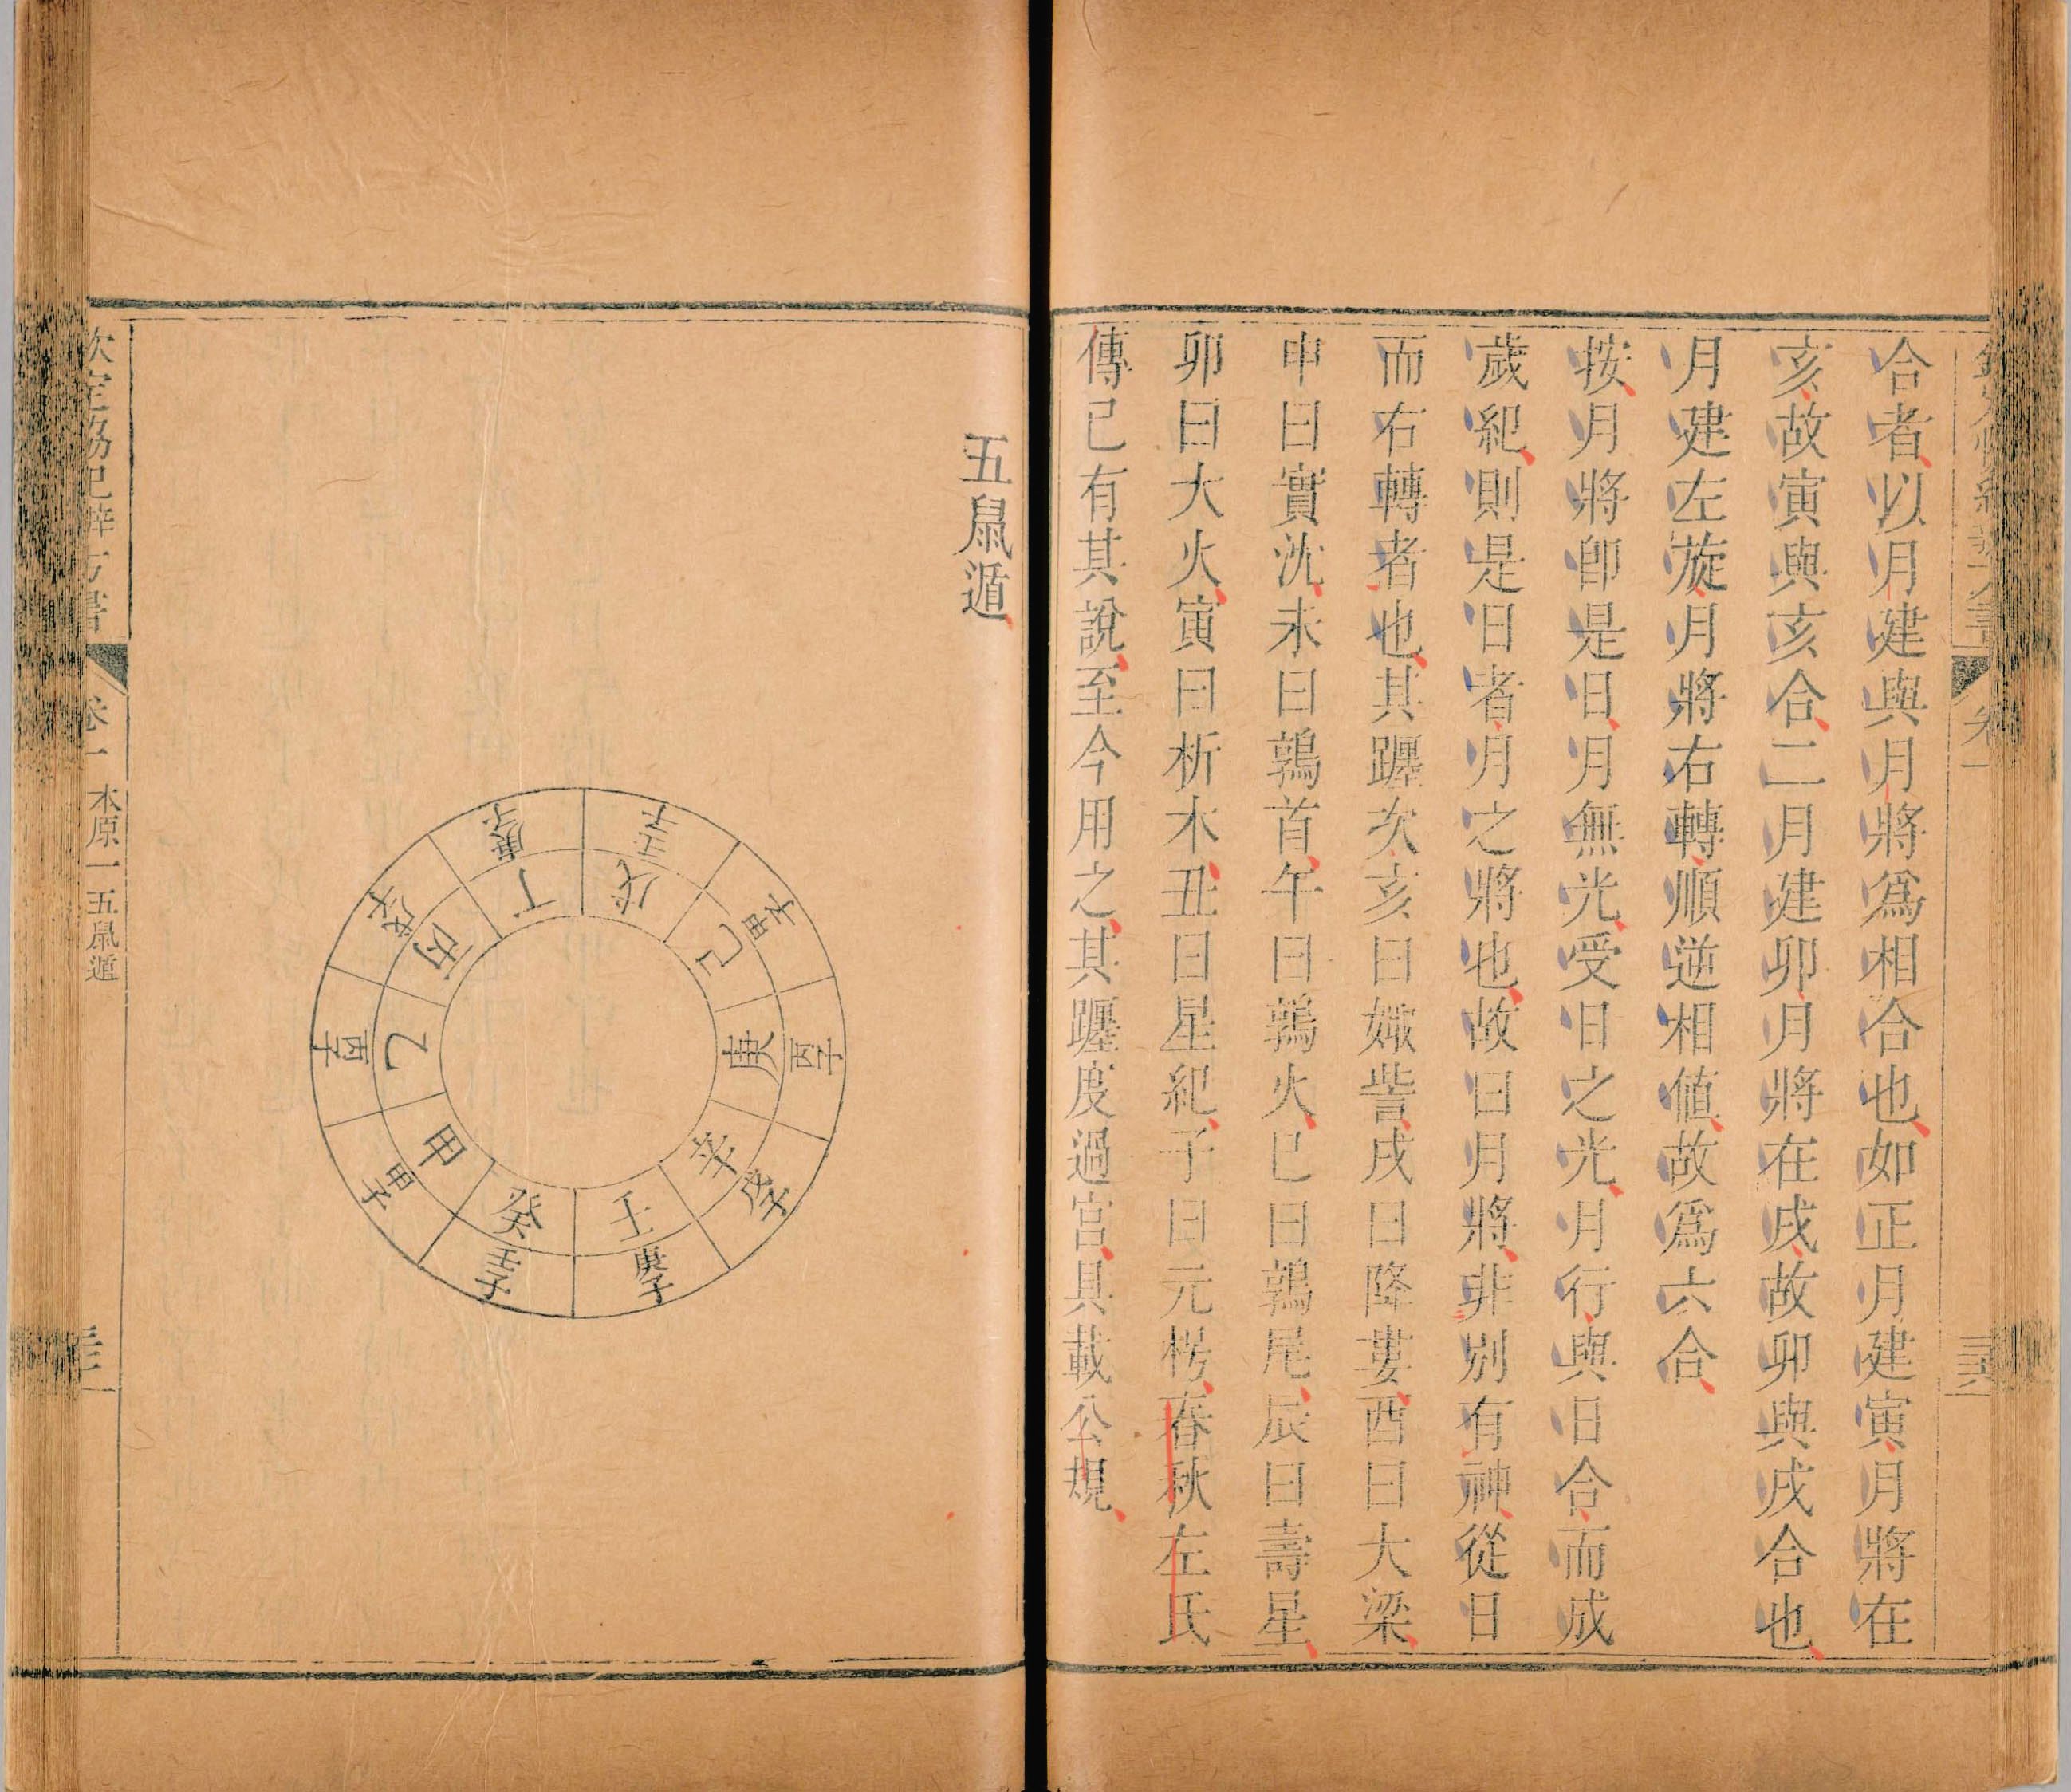 合者以月建與月將爲相合也如正月建寅月將在
亥故寅與亥合二月建卯月將在戌故卯與戌合也
月建左旋月將右轉順逆相值故爲六合
按月將卽是日月無光受日之光月行與日合而成
歲紀則是日者月之將也故曰月將非別有神從日
而右轉者也其躔次亥曰娵訾戌曰降婁酉曰大梁
申曰實沈未曰鶉首午曰鶉火巳曰鶉尾辰曰壽星
卯曰大火寅曰析木丑曰星紀子曰元枵春秋左氏
傳已有其說至今用之其躔度過宮具載公規
五鼠遁
甲
甲子
乙
丙子
丙
戊子
丁
庚子
戊
壬子
己
甲子
庚
丙子
辛
戊子
壬
庚子
癸
壬子
欽定協紀辨方書
卷一
本原一 五鼠遁